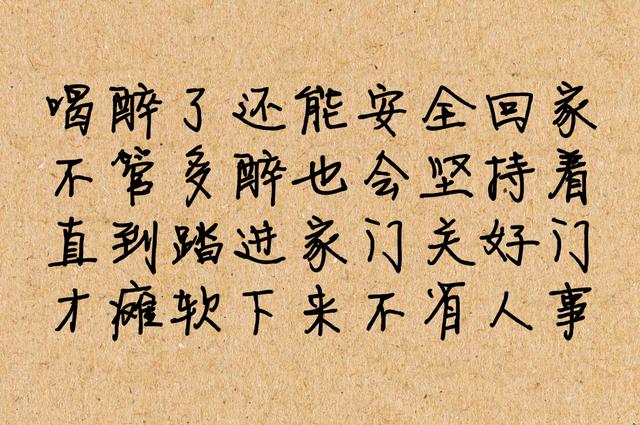 喝醉了还能安全回家
不管多醉也会坚持着
直到踏进家门关好门
才瘫软下来不省人事